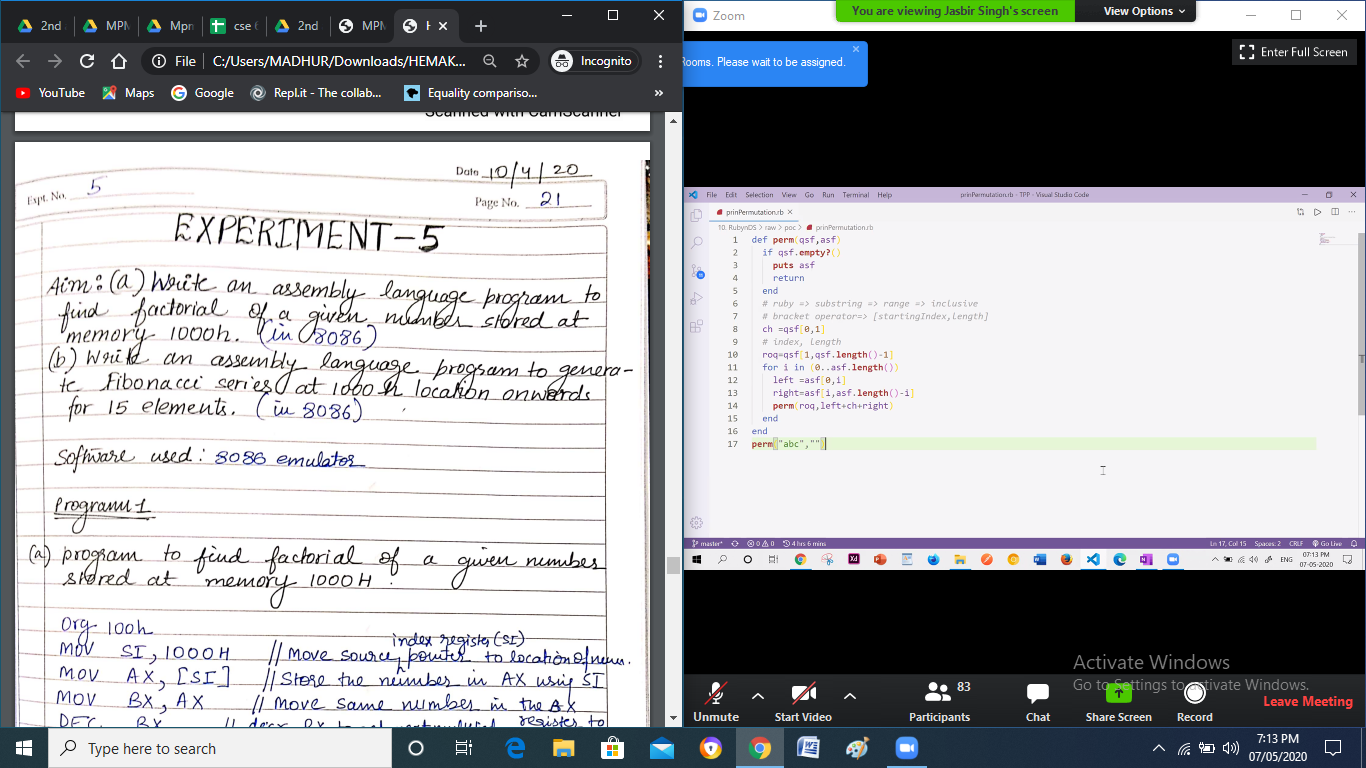 2nd
MPM
Mpn
cse 6
2nd
MPM
H
File
C:/Users/MADHUR/Downloads/HEMAK...
Incognito
YouTube
Maps
Google
Repl.it - The collab...
Equality compariso...
»
Scanned with CamScanner
Date 10/4/20
Expt. No. 5
Page No. 21
EXPERIMENT-5
Aim: (a) Write an assembly language program to
find factorial of a given number stored at
memory 1000h. (in 8086)
(b) Write an assembly language program to genera-
te Fibonacci series at 1000h location onwards
for 15 elements. (in 8086)
Software used: 8086 emulator
Program 1
(a) program to find factorial of a given number
stored at memory 1000H.
Org 100h
index register (SI)
MOV SI, 1000H // Move source pointer to location of mem.
MOV AX, [SI] // Store the number in AX using SI
MOV BX, AX // Move same number in the BX
register to
DEC BX
Zoom
You are viewing Jasbir Singh's screen
View Options
Rooms. Please wait to be assigned.
Enter Full Screen
File Edit Selection View Go Run Terminal Help
prinPermutation.rb - TPP - Visual Studio Code
prinPermutation.rb
10. RubynDS > raw > poc > prinPermutation.rb
1 def perm(qsf,asf)
2 if qsf.empty?()
3 puts asf
4 return
5 end
6 # ruby => substring => range => inclusive
7 # bracket operator=> [startingIndex,length]
8 ch =qsf[0,1]
9 # index, length
10 roq=qsf[1,qsf.length()-1]
11 for i in (0..asf.length())
12 left =asf[0,i]
13 right=asf[i,asf.length()-i]
14 perm(roq,left+ch+right)
15 end
16 end
17 perm("abc","")
master*
0 0
4 hrs 6 mins
Ln 17, Col 15
Spaces: 2
CRLF
Go Live
ENG
07:13 PM
07-05-2020
Activate Windows
Go to Settings to activate Windows.
Unmute
Start Video
Participants
83
Chat
Share Screen
Record
Leave Meeting
Type here to search
7:13 PM
07/05/2020